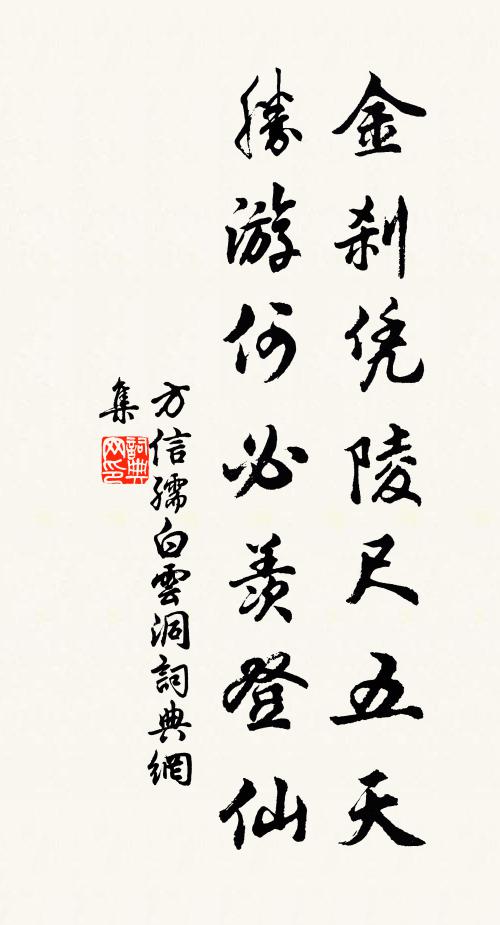 金刹凭陵尺五天
勝游何必羨登仙
方信孺白雲洞詞典網
集
詞典
网印